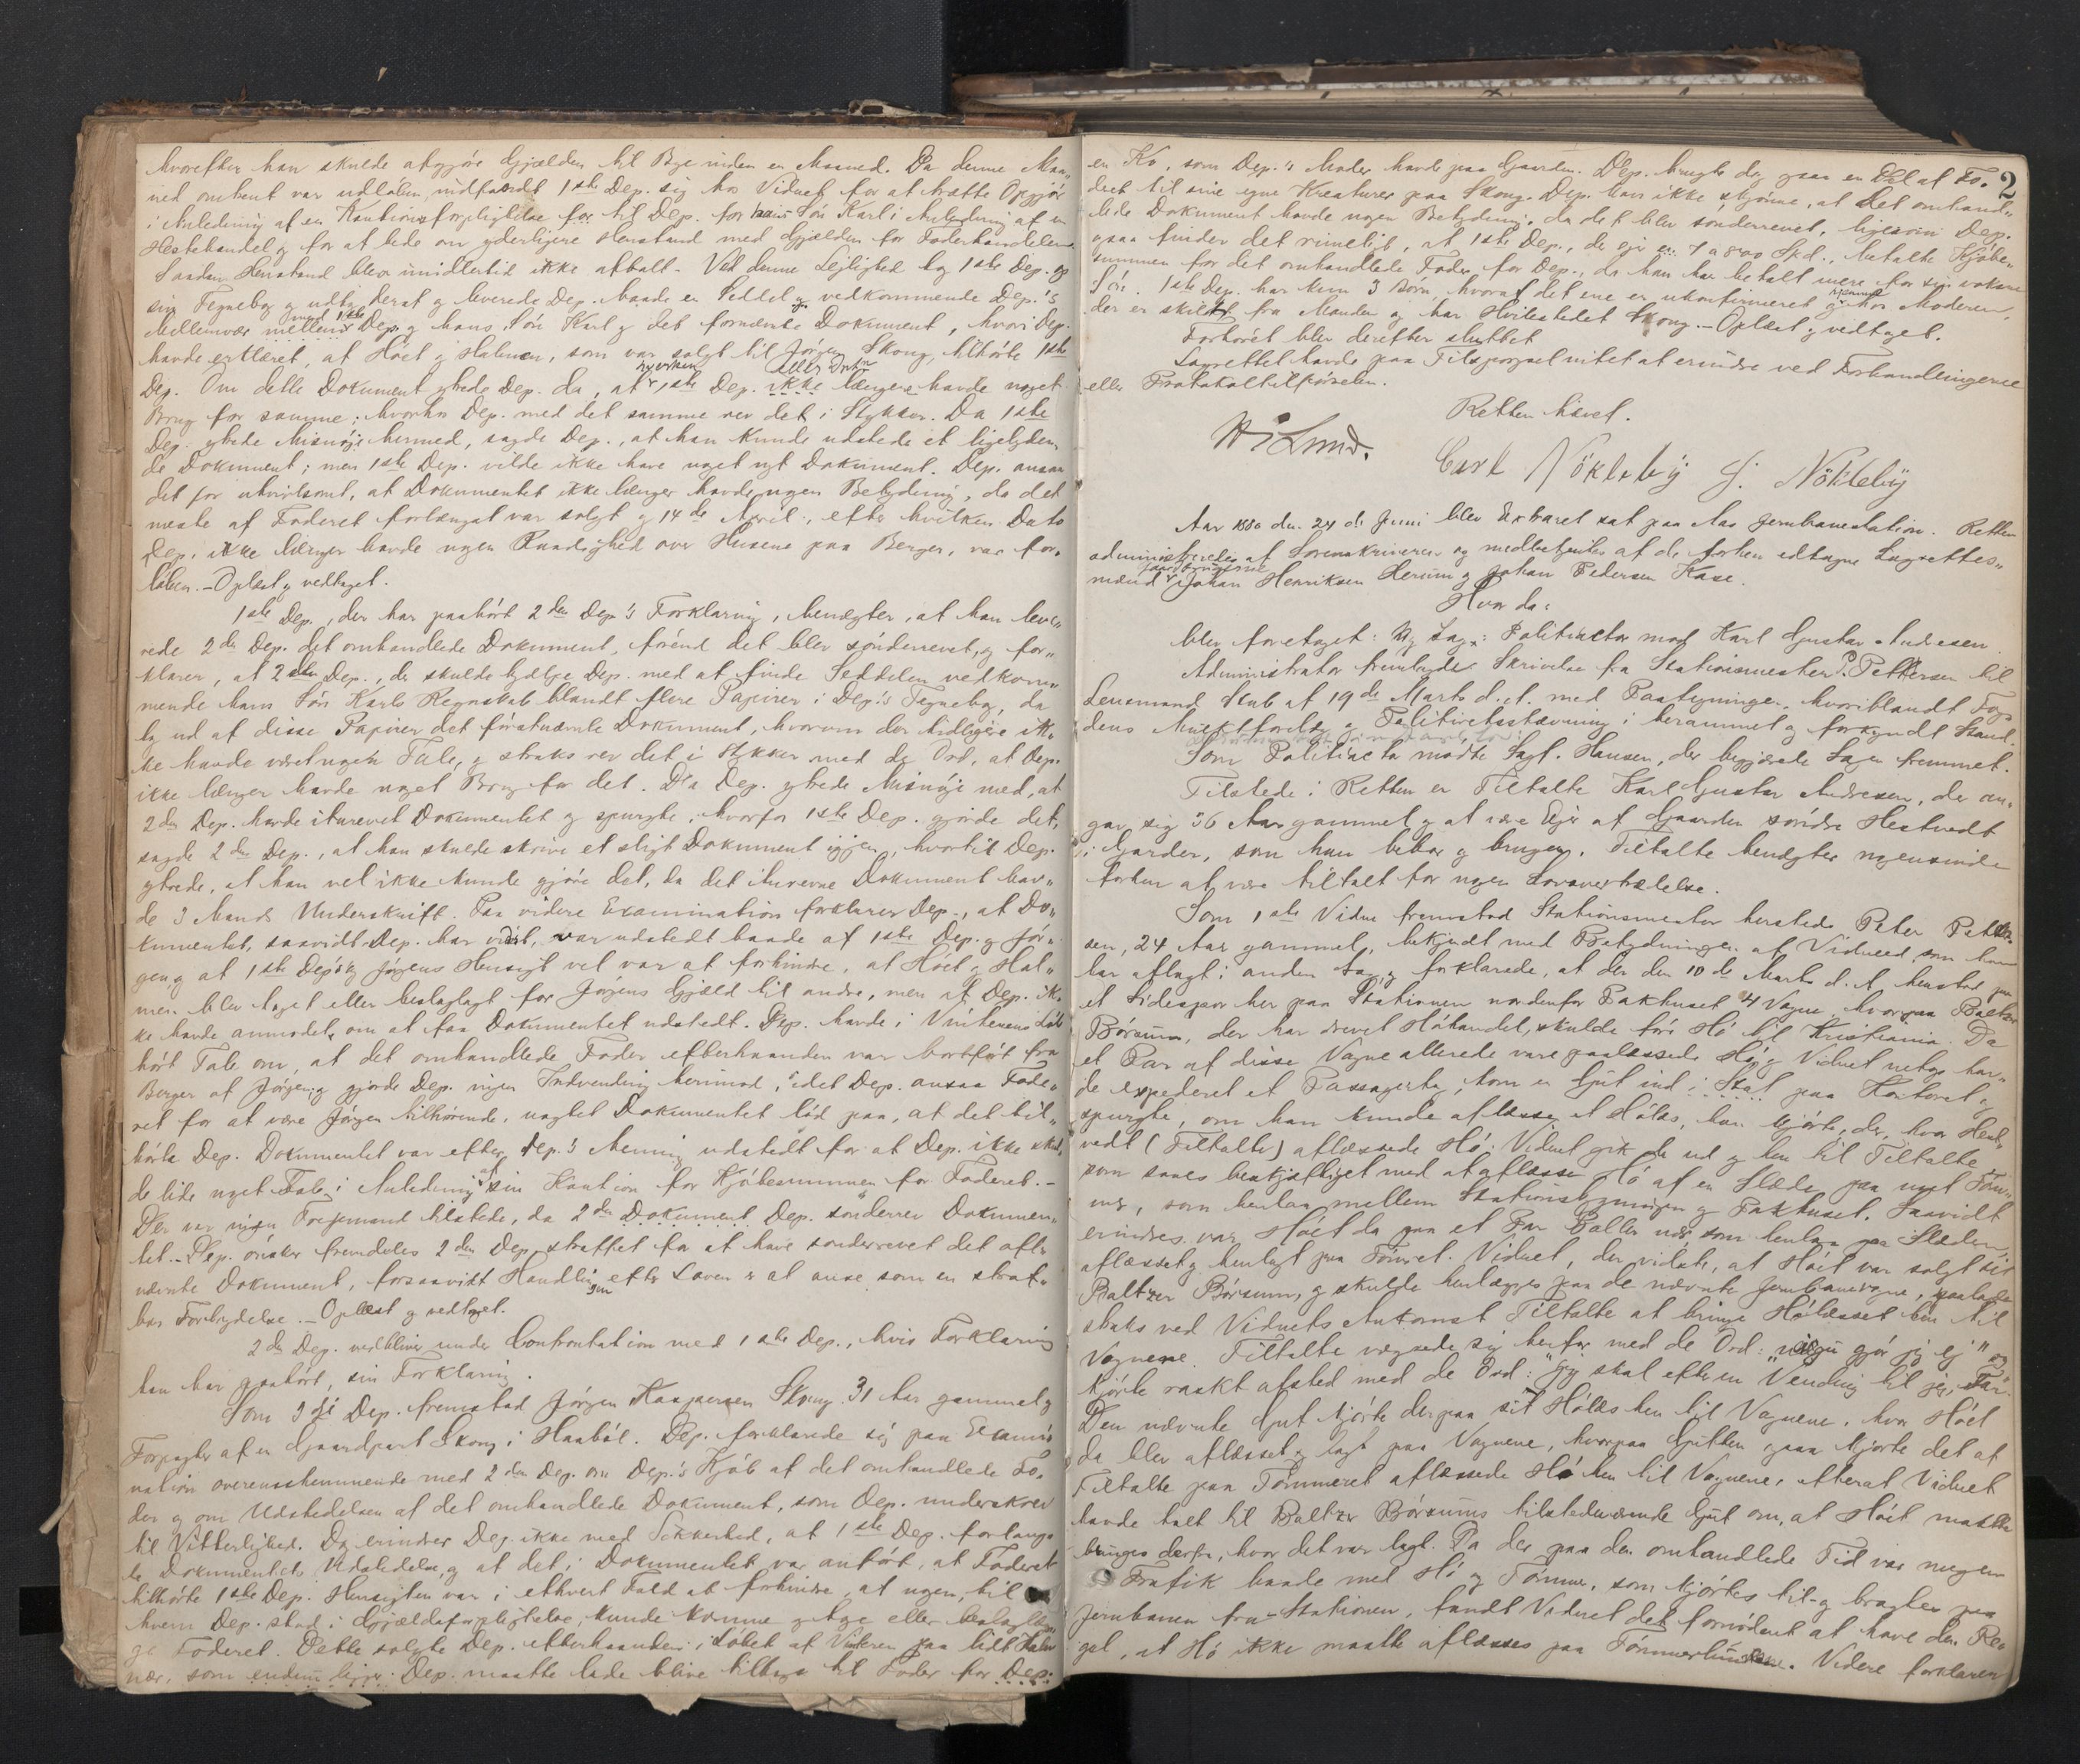 hvorefter han skulde afgjøre Gjælden til Bye inden en Maaned. Da denne Maa„
ned omtrent var udløben, indfandt 1ste Dep. sig hos Vidnet for at træffe Opgjør
i Anledning af en Kautionsforpligtelse for til Dep. for hans Søn Karl i Anledning af en
Hestehandel og for at bede om yderligere Henstand med Gjælden for Foderhandelen.
Saadan Henstand blev imidlertid ikke aftalt. Ved denne Leilighed tog 1ste Dep. op
sin Tegnebog og udtog deraf og leverede Dep. baade en Seddel vedkommende Dep.'s
Mellemvær med 1ste Dep. og hans Søn Karl og det fornævnte Dokument, hvori Dep.
havde erklæret, at Høet og Halmen, som var solgt til Jørgen Skoug, tilhørte 1ste
Dep. Om dette Dokument ytrede Dep. da, at hverken 1ste Dep. ikke længere havde noget
Brug for samme; hvorpaa Dep. med det samme rev det i Stykker. Da 1ste
Dep. ytrede Misnøie hermed, sagde Dep., at han kunde udstede et ligelyden„
de Dokument; men 1ste Dep. vilde ikke have noget nyt Dokument. Dep. ansaa
det for utvivlsomt, at Dokumentet ikke længer havde nogen Betydning, da det
meste af Foderet forlængst var solgt og 14de April, efter hvilken Dato
Dep. ikke længer havde nogen Raadighed over Husene paa Berger, var for„
løben. – Oplæst og vedtaget.
1ste Dep., der har paahørt 2den Dep's Forklaring, benægter, at han leve„
rede 2den Dep. det omhandlede Dokument, førend det blev sønderrevet, og for„
klarer, at 2den Dep., der skulde hjælpe Dep. med at finde Seddelen vedkom„
mende hans Søn Karls Regnskab blandt flere Papirer i Dep.'s Tegnebog, da
tog ud af disse Papirer det førstnævnte Dokument, hvorom der tidligere ik„
ke havde været nogen Tale, og straks rev det i Stykker med de Ord, at Dep.
ikke længer havde noget Brug for det. Da Dep. ytrede Misnøie med, at
2den Dep. havde iturevet Dokumentet og spurgte, hvorfor 1ste Dep. gjorde det,
sagde 2den Dep., at han skulde skrive et sligt Dokument igjen, hvortil Dep.
ytrede, at han vel ikke kunde gjøre det, da det iturevne Dokument hav„
de 3 Mands Underskrift. Paa videre Examination forklarer Dep., at Do„
kumentet, saavidt Dep. har vidst, var udstedt baade af 1ste Dep. og Jør„
gen, og at 1ste Dep.'s og Jørgens Hensigt vel var at forhindre, at Høet og Hal„
men blev taget eller beslaglagt for Jørgens Gjæld til andre, men at Dep. ik„
ke havde anmodet om at faa Dokumentet udstedt. Dep. havde i Vinterens Løb
hørt Tale om, at det omhandlede Foder efterhaanden var bortført fra
Berger af Jørgen, og gjorde Dep. ingen Indvending herimod, idet Dep. ansaa Fode„
ret for at være Jørgen tilhørende, uagtet Dokumentet lød paa, at det til„
hørte Dep. Dokumentet var efter Dep.'s Mening udstedt for at Dep. ikke skul„
de lide noget Tab i Anledning af sin Kaution for Kjøbesummen for Foderet. –
Der var ingen Tredjemand tilstede, da 2den Dokument Dep. sønderrev Dokumen„
tet. – Dep. ønsker fremdeles 2den Dep. straffet for at have sønderrevet det oft„
nævnte Dokument, forsaavidt Handlingen efter Loven er at anse som en straf„
bar Forbrydelse. – Oplæst og vedtaget.
2den Dep. vedbliver under Confrontation med 1ste Dep., hvis Forklaring
han har paahørt, sin Forklaring.
Som 3die Dep. fremstod Jørgen Kaspersen Skoug, 31 Aar gammel og
Forpagter af en Gaardpart Skoug i Haabøl. Dep. forklarede sig paa Exami„
nation overensstemmende med 2den Dep. om Dep.'s Kjøb af det omhandlede Fo„
der og om Udstedelsen af det omhandlede Dokument, som Dep. underskrev
til Vitterlighed. Dog erindrer Dep. ikke med Sikkerhed, at 1ste Dep. forlang„
te Dokumentets Udstedelse, og at det i Dokumentet var anført, at Foderet
tilhørte 1ste Dep. Hensigten var i ethvert Fald at forhindre, at nogen, til
hvem Dep. stod i Gjældsforpligtelse, kunde komme og tage eller beslaglæg„
ge Foderet. Dette solgte Dep. efterhaanden i Løbet af Vinteren paa lidt Halm
nær, som endnu ligger. Dep. maatte lade blive tilbage til Foder for Dep.
2
en Ko, som Dep.'s Moder havde paa Gaarden. Dep. brugte dog paa en Del af Fo„
deret til sine egne Kreaturer paa Skoug. Dep. kan ikke skjønne, at det omhand„
lede Dokument havde nogen Betydning, da det blev sønderrevet, ligesom Dep.
ogsaa finder det rimeligt, at 1ste Dep., der ejer en 7 a 800 Spd., betalte Kjøbe„
summen for det omhandlede Foder for Dep., da han har betalt mere for sin voksne
Søn. 1ste Dep. har kun 3 Børn, hvoraf det ene er ukonfirmeret og hjemme hos Moderen,
der er skildt fra Manden og har Hvilestedet Skoug. – Oplæst og vedtaget.
Forhøret blev derefter sluttet.
Lagrettet havde paa Tilspørgsel intet at erindre ved Forhandlingerne
eller Protokoltilførselen.
Retten hævet.
Lund.
Carl Nökleby J. Nökleby
Aar 1880 den 24de Juni blev Extraret sat paa Aas Jernbanestation. Retten
administreredes af Sorenskriveren og medbetjentes af de forhen edtagne Lagrettes„
mænd Gaardbrugerne Johan Henriksen Herum og Johan Pedersen Kase.
Hvor da:
blev foretaget: Ny Sag: Politiactor mod Karl Gustav Andresen.
Administrator fremlagde Skrivelse fra Stationsmester P. Pettersen til
Lensmand Stub af 19de Marts d. A. med Paategninger, hvoriblandt Fog„
dens Mulktforelæg og Politiretsstævning i berammet og forkyndt Stand.
Som Politiactor mødte Sagf. Hansen, der begjærede Sagen fremmet.
Tilstede i Retten er Tiltalte Karl Gustav Andresen, der an„
gav sig 36 Aar gammel og at være Ejer af Gaarden søndre Hestvedt
i Garder, som han bebor og bruger. Tiltalte benægter nogensinde
forhen at være tiltalt for nogen Lovovertrædelse.
Som 1ste Vidne fremstod Stationsmester hersteds Peter Petter„
sen, 24 Aar gammel, bekjendt med Betydningen af Vidneed, som han
har aflagt i anden Sag, og forklarede, at der den 10de Marts d. A. henstod paa
et Sidespor her paa Stationen nordenfor Pakhuset 4 Vogne, hvorpaa Baltzer
Børsum, der har drevet Høhandel, skulde føre Hø til Kristiania. Da
et Par af disse Vogne allerede vare paalæssede Hø, og Vidnet netop hav„
de expederet et Passagertog, kom en Gut ind i Stat paa Kontoret og
spurgte, om han kunde aflæsse et Hølæs, han kjørte, der, hvor Hest„
vedt (Tiltalte) aflæssede Hø. Vidnet gik da ud og hen til Tiltalte,
som saaes beskjæftiget med at aflæsse Hø af en Slæde paa noget Tøm„
mer, som henlaa mellem Stationsbygningen og Pakhuset. Saavidt
erindres var Høet da paa et Par Baller nær, som henlaa paa Slæden,
aflæsset og henlagt paa Tømret. Vidnet, der vidste, at Høet var solgt til
Baltzer Børsum, og skulde henlægges paa de nævnte Jernbanevogne, paalagde
straks ved Vidnets Ankomst Tiltalte at bringe Hølæsset hen til
Vognene. Tiltalte vægrede sig herfor med de Ord: gjør jeg ej" og
kjørte raskt afsted med de Ord: "Jeg skal efter en Vending til jeg, Far".
Den nævnte Gut kjørte derpaa sit Hølæs hen til Vognene, hvor Høet
da blev aflæsset og lagt paa Vognene, hvorpaa Gutten ogsaa kjørte det af
Tiltalte paa Tømmeret aflæssede Hø hen til Vognene, efterat Vidnet
havde talt til Baltzer Børsums tilstedeværende Gut om, at Høet maatte
bringes derfra, hvor det var lagt. Da der paa den omhandlede Tid var megen
Trafik baade med Hø og Tømmer, som kjørtes til og bragtes paa
Jernbanen fra Stationen, fandt Vidnet det fornødent at have den Re„
gel, at Hø ikke maatte aflæsses paa Tømmerlunden. Videre forklarer